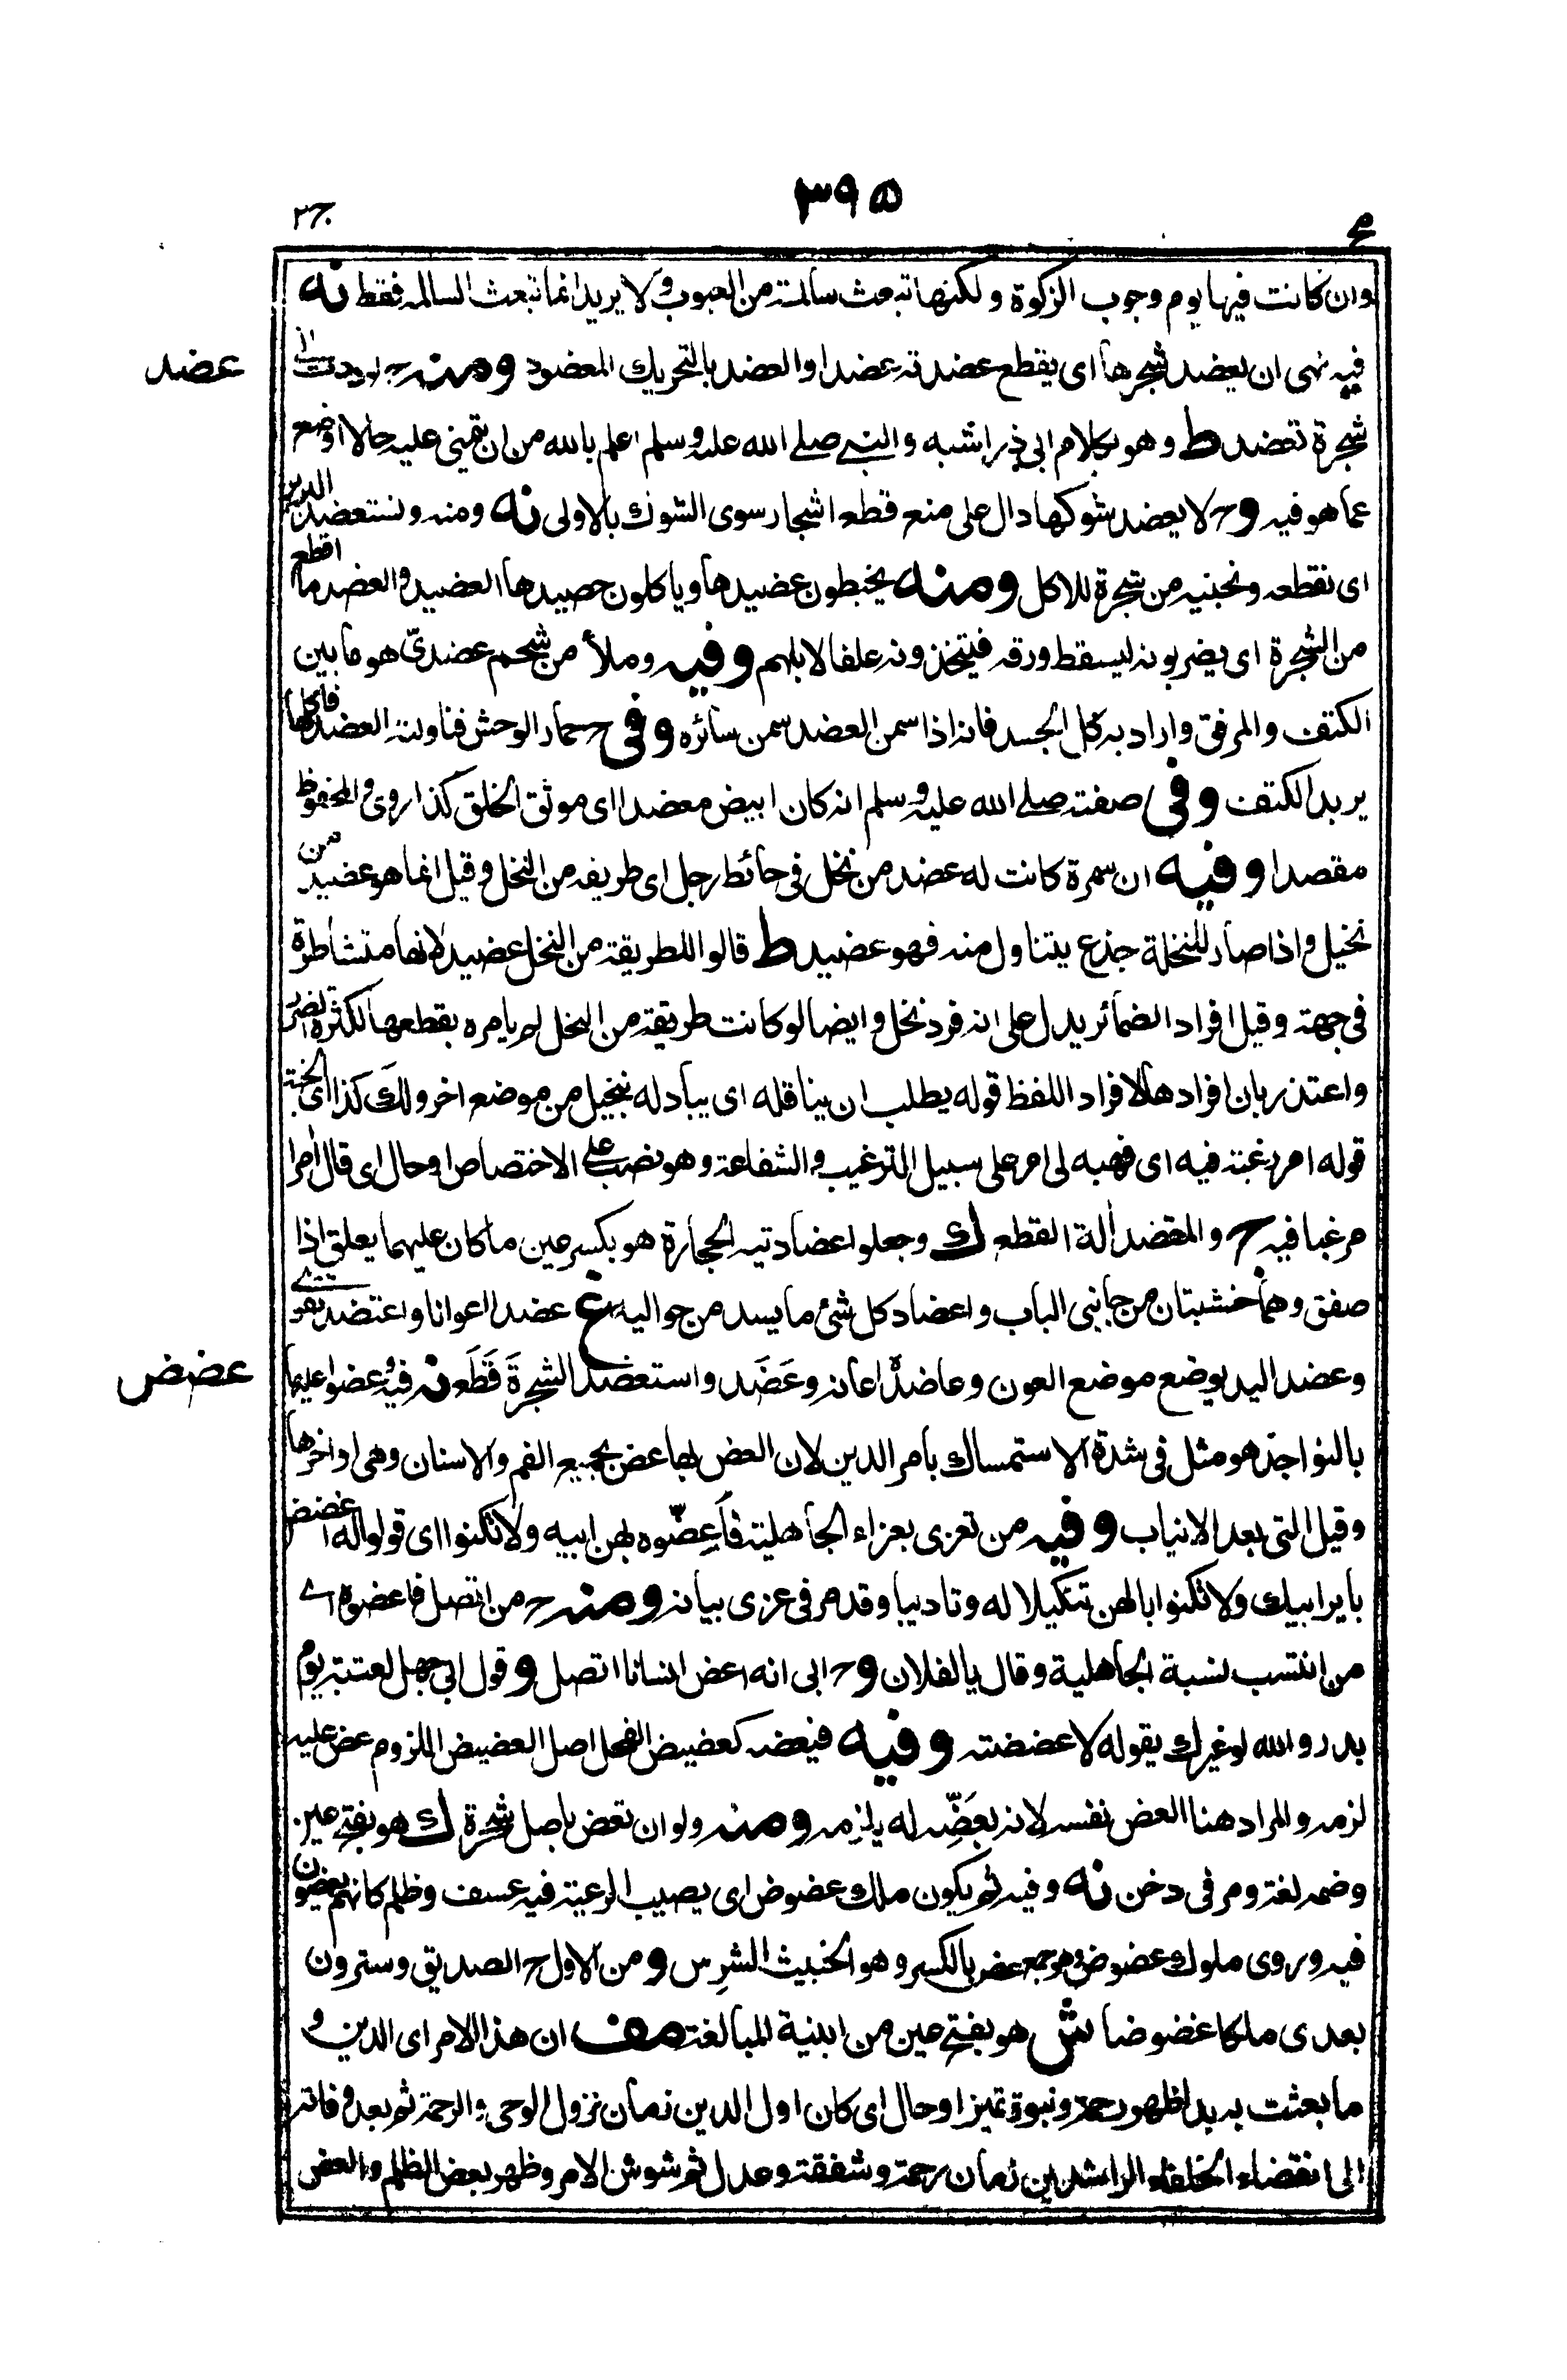 ٣٩٥
ج٣
وان كانت فيها يوم وجوب الزكوة ولكنها تبعث سالمة من العيوب ولا يريد انما تبعث السالمه فقط نه
عضد
فيه نهى ان يعضد شجرها اى يقطع عضدته عضدا والعضد بالتحريك المعضود ومنه ح لوددت انى
شجرة تعضد ط وهو بكلام ابى ذر اشبه والنبى صلے الله عليه وسلم اعلم بالله من ان يتمنى عليه حالا اوضع
عما هو فيه وح لا يعضد شوكها دال على منع قطع اشجار سوى الشوك بالاولى نه ومنه ونستعضد البرير
اى نقطعه ونجنيه من شجرة للاكل ومنه يخبطون عضيدها وياكلون حصيدها العضيد والعضد ما اقطع
من الشجرة اى يضربونه ليسقط ورقه فيتخذونه علفا لابلهم وفيه وملأ من شحم عضدىّ هو ما بين
الكتف والمرفق واراد به كل الجسد فانه اذا سمن العضد سمن سائره وفى ح حمار الوحش فناولته العضد فاكلها
يريد الكتف وفى صفته صلے الله عليه وسلم انه كان ابيض معضدا اى موثق الخلق كذا روى والمحفوظ
مقصدا وفيه ان سمرة كانت له عضد من نخل فى حائط رجل اى طريقه من النخل وقيل انما هو عضيد من
نخيل واذا صار للنخلة جذع يتناول منه فهو عضيد ط قالوا للطريقة من النخل عضيد لانها متشاطرة
فى جهة وقيل افراد الضمائر يدل على انه فرد نخل وايضا لو كانت طريقة من النخل لم يامره بقطعها لكثرة الضرر
واعتذر بان افرادها لافراد اللفظ قوله يطلب ان يناقله اى يبادله بنخيل من موضع اخر ولك كذا اى الجنة
قوله امر رغبته فيه اى فهبه لى امر على سبيل الترغيب والشفاعة وهو نصب على الاختصاص او حال اى قال امرا
مرغبا فيه ح والمقضد ألة القطع ك وجعلوا عضادتيه الحجارة هو بكسر عين ما كان عليهما يعلق اذا
صفق وهما خشبتان من جانبى الباب واعضاد كل شئ ما يسد من حواليه غ عضدا اعوانا واعتضد به
عضض
وعضد اليد يوضع موضع العون وعاضدهٗ اعانه وعَضَد واستعضد الشجرة قَطَع نه فيه وعضوا عليها
بالنواجذ هو مثل فى شدة الاستمساك بامر الدين لان العض بها عض بجميع الفم والاسنان وهى اواخرها
وقيل التى بعد الانياب وفيه من تعزى بعزاء الجاهلية فأَعِضّوه بهن ابيه ولا تكنوا اى قولوا له اعضض
باير ابيك ولا تكنوا بالهن تنكيلا له وتاديبا وقد مر فى عزى بيانه ومنه ح من اتصل فاعضوه اے
من انتسب نسبة الجاهلية وقال يا لفلان وح ابى انه اعض انسانا اتصل وقول ابى جهل لعتبة يوم
بدر والله لو غيرك يقوله لاعضضته وفيه فيعضه كعضيض الفحل اصل العضيض اللزوم عض عليه
لزمه والمراد هنا العض نفسه لانه بعَضِّه له يلزمه ومنه ولو ان تعض باصل شجرة ك هو بفتح عين
وضمه لغة ومر فى دخن نه وفيه ثم يكون ملك عضوض اى يصيب الرعية فيه عسف وظلم كانهم يعضون
فيه وروى ملوك عضوض وهو جمع عض بالكسر وهو الخبيث الشرِس ومن الاول ح الصديق وسترون
بعدى ملكا عضوضا ش هو بفتح عين من ابنية المبالغة مف ان هذا الامر اى الدين و
ما بعثت به بدا ظهر رحمة ونبوة تميز او حال اى كان اول الدين زمان نزول الوحى والرحمة ثم بعد وفاته
الى انقضاء الخلفاء الراشدين زمان رحمة وشفقة وعدل ثم شوش الامر وظهر بعض الظلم والعض